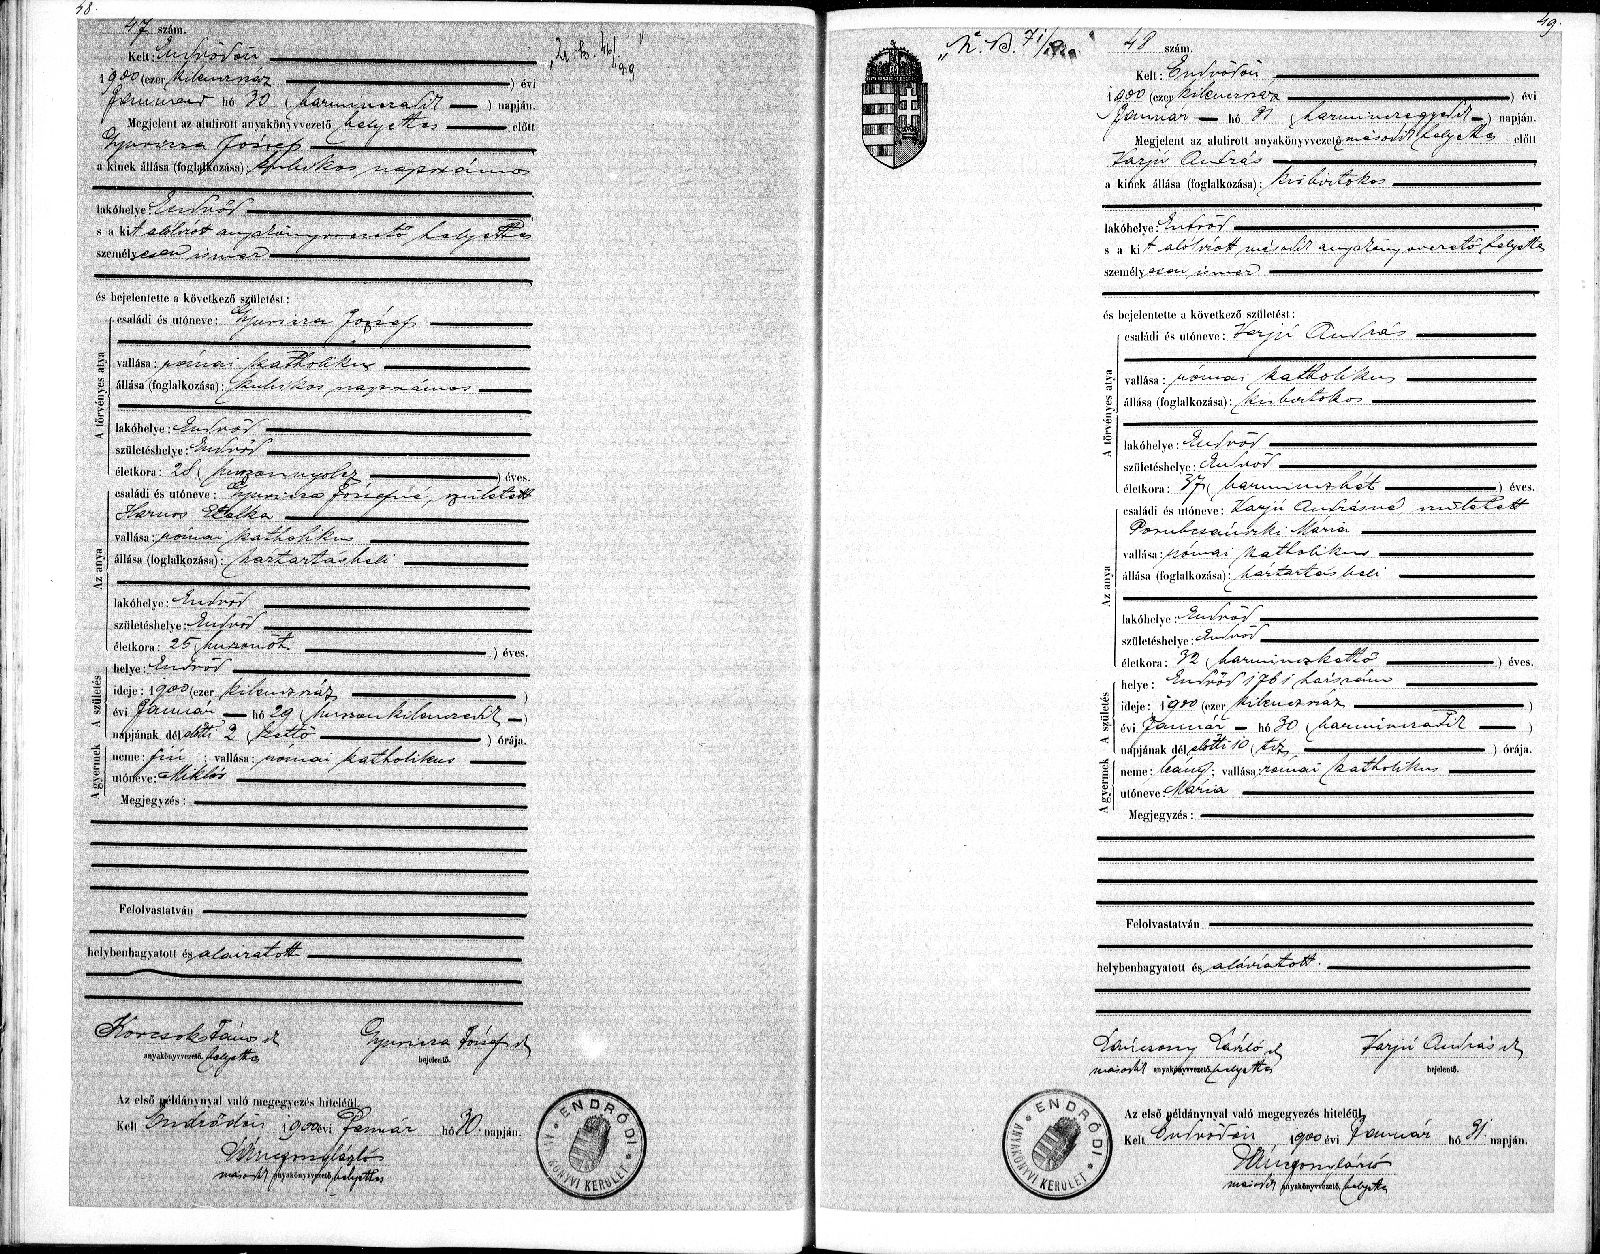 48.
47 szám.
Kelt: Endrődön
1900 (ezer kilenczszáz ) évi
Január hó 30 (harminczadik ) napján.
Megjelent az alulirott anyakönyvvezető helyettes előtt
József
a kinek állása (foglalkozása): kubikos napszámos
lakóhelye: Endrőd
s a kit alólirott anyakönyvvezető helyettes
személyesen ismer
és bejelentette a következő születést:
A törvényes atya
családi és utóneve: József
vallása: római katholikus
állása (foglalkozása): kubikos napszámos
lakóhelye: Endrőd
születéshelye: Endrőd
életkora: 28 (huszonnyolcz ) éves.
Az anya
családi és utóneve: Józsefné, született
Harnos Etelka
vallása: római katholikus
állása (foglalkozása): háztartásbeli
lakóhelye: Endrőd
születéshelye: Endrőd
életkora: 25 (huszonöt ) éves.
A születés
helye: Endrőd
ideje: 1900 (ezer kilenczszáz )
évi Január hó 29 (huszonkilenczedik )
napjának dél előtti 2 (kettő ) órája.
A gyermek
neme: fiú ; vallása: római katholikus
utóneve: Miklós
Megjegyzés:
Felolvastatván
helybenhagyatott és aláiratott
Korcsok János
József
anyakönyvvezető helyettes
bejelentő.
Az első példánynyal való megegyezés hiteléül.
Kelt Endrődön 1900 évi Január hó 30. napján.
László
második anyakönyvvezető helyettes
ENDRŐDI
ANYAKÖNYVI KERÜLET
49.
48 szám.
Kelt: Endrődön
1900 (ezer kilenczszáz ) évi
Január hó 31 (harminczegyedik ) napján.
Megjelent az alulirott anyakönyvvezető második helyettes előtt
Varjú András
a kinek állása (foglalkozása): kisbirtokos
lakóhelye: Endrőd
s a kit alólirott második anyakönyvvezető helyettes
személyesen ismer
és bejelentette a következő születést:
A törvényes atya
családi és utóneve: Varjú András
vallása: római katholikus
állása (foglalkozása): kisbirtokos
lakóhelye: Endrőd
születéshelye: Endrőd
életkora: 37 (harminczhét ) éves.
Az anya
családi és utóneve: Varjú Andrásné született
Porubcsánszki Mária
vallása: római katholikus
állása (foglalkozása): háztartásbeli
lakóhelye: Endrőd
születéshelye: Endrőd
életkora: 32 (harminczkettő ) éves.
A születés
helye: Endrőd 1761 házszám
ideje: 1900 (ezer kilenczszáz )
évi Január hó 30 (harminczadik )
napjának dél előtti 10 (tíz ) órája.
A gyermek
neme: leány; vallása: római katholikus
utóneve: Mária
Megjegyzés:
Felolvastatván
helybenhagyatott és aláiratott.
László
Varjú András
második anyakönyvvezető helyettes
bejelentő.
Az első példánynyal való megegyezés hiteléül.
Kelt Endrődön 1900 évi Január hó 31. napján.
László
második anyakönyvvezető helyettes
ENDRŐDI
ANYAKÖNYVI KERÜLET